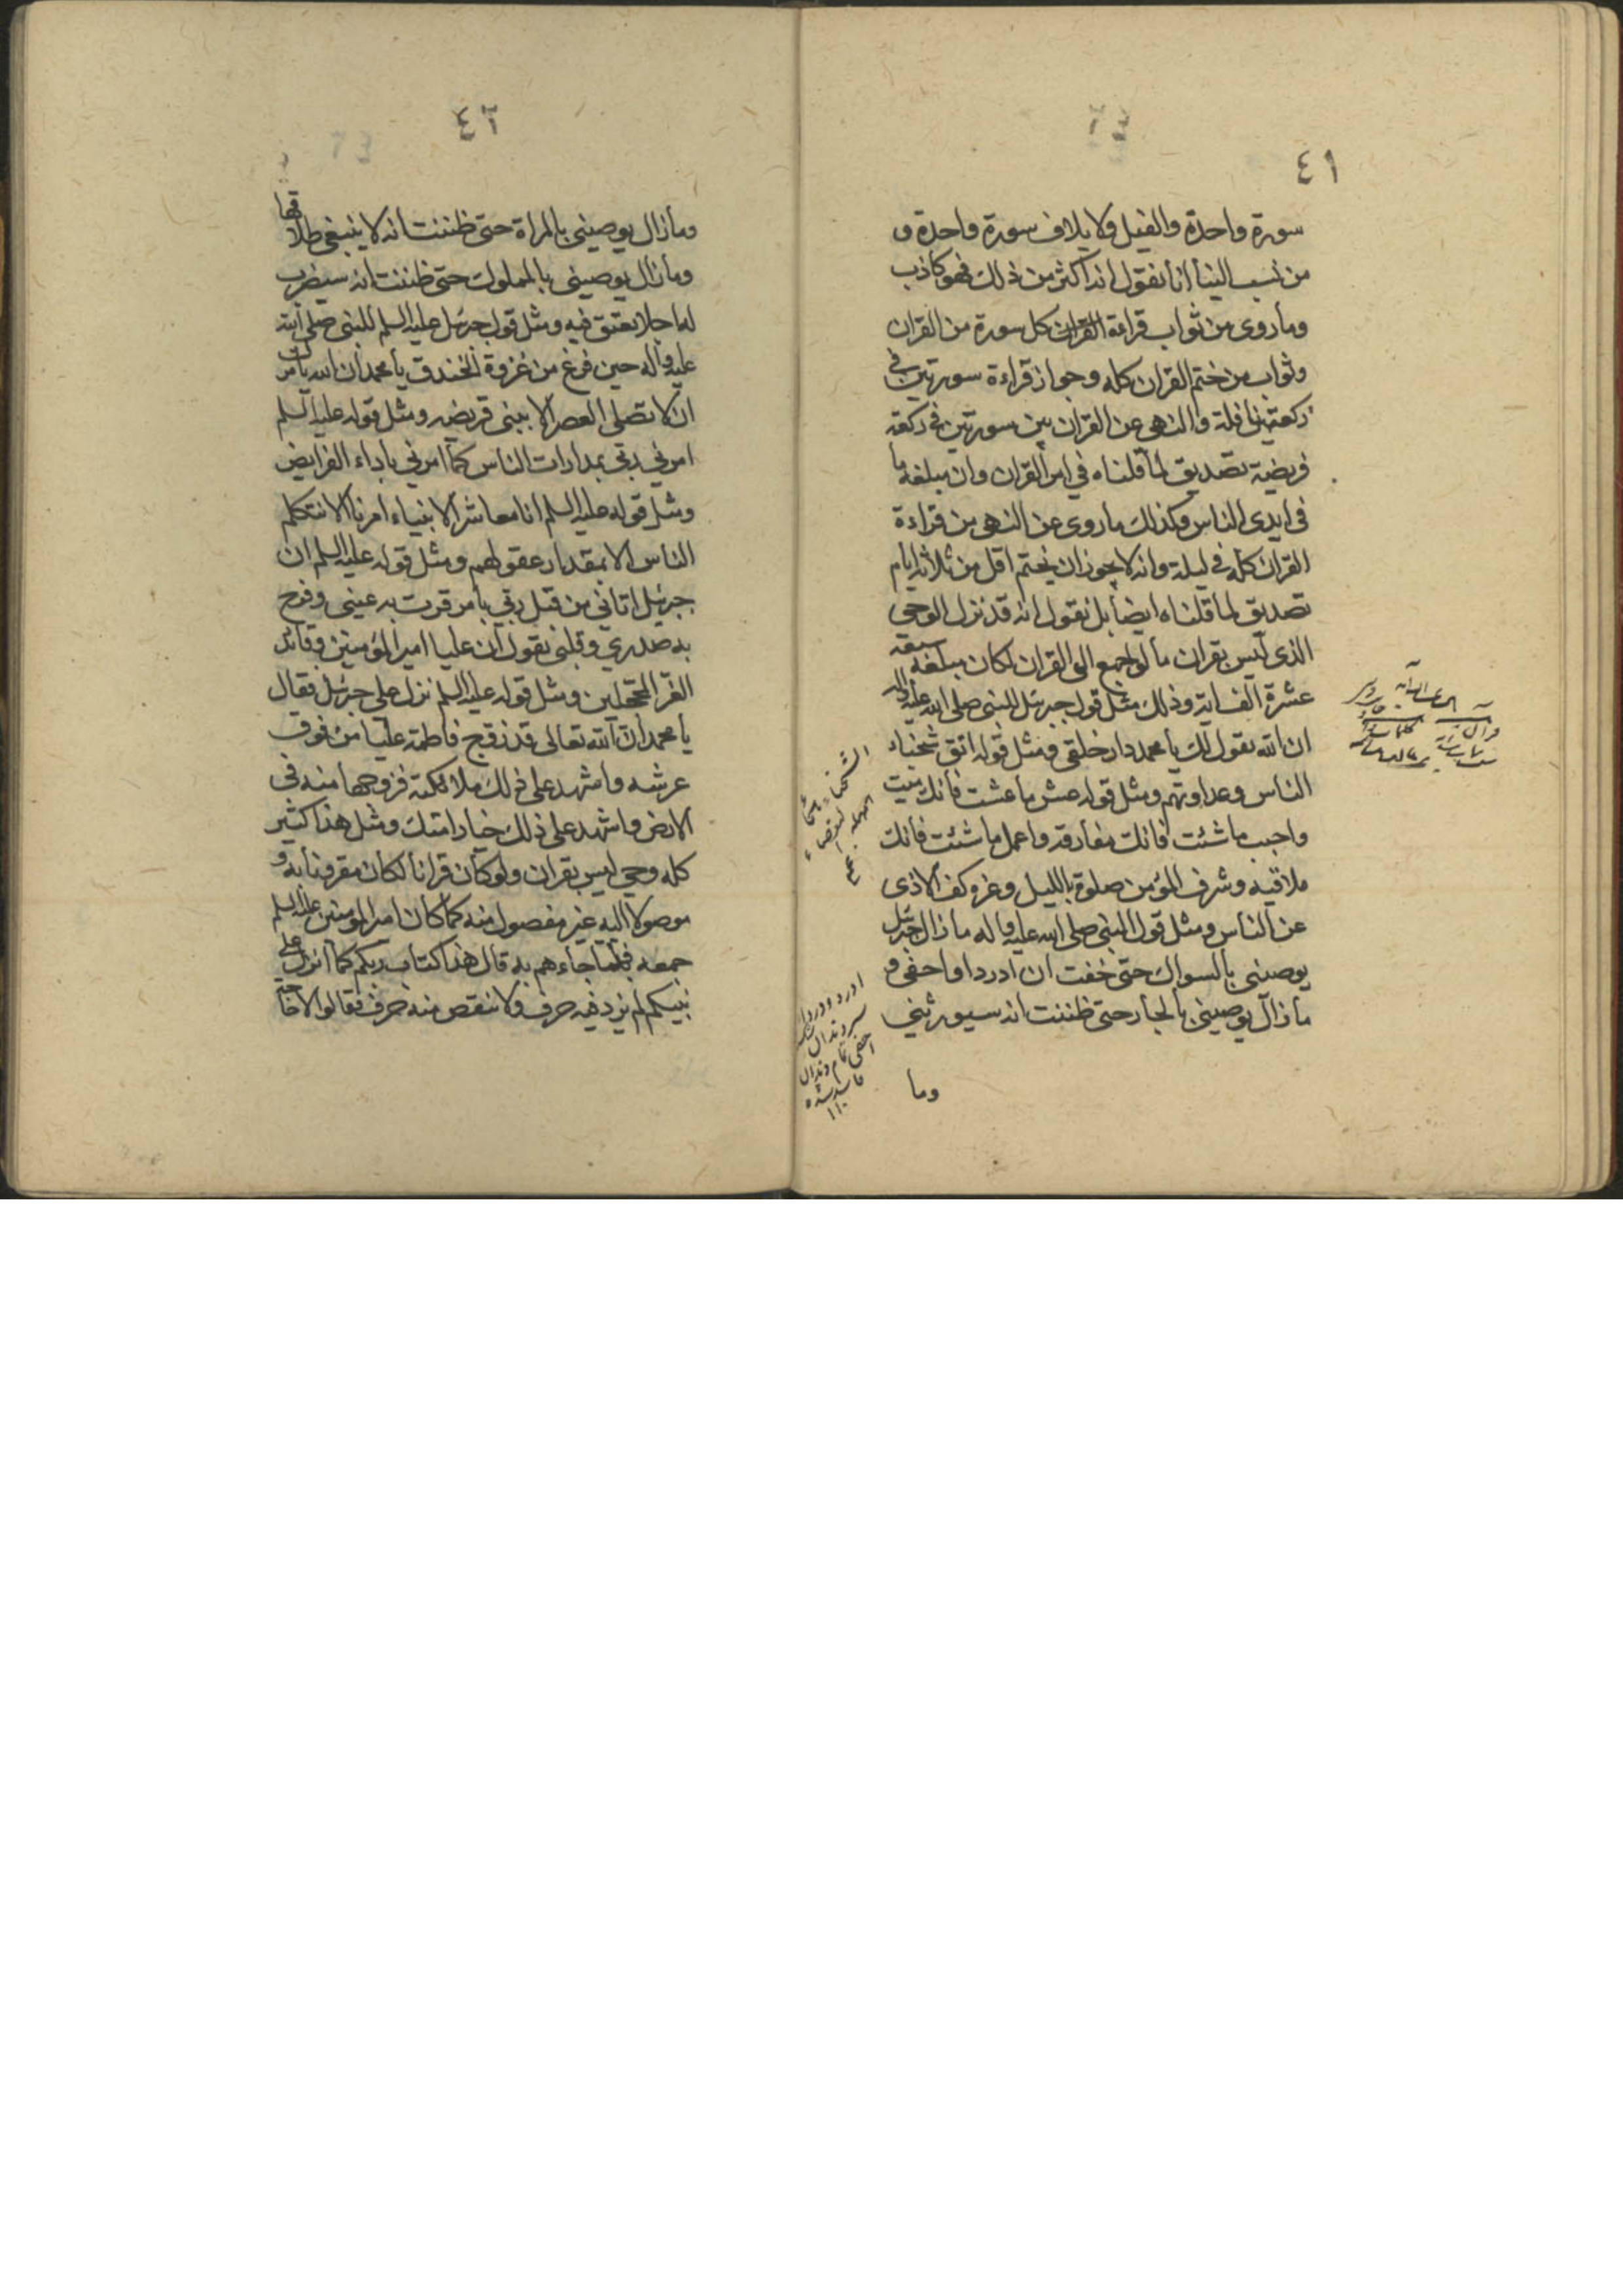 ٤١
سورة واحدة والفيل ولايلاف سورة واحدة و
من نسب الينا انا نقول انه اكثر من ذلك فهو كاذب
وما روى من ثواب قراءة القران كل سورة من القران
وثواب من ختم القران كله وجواز قراءة سورتين في
ركعتين نافلة والنهى عن القران بين سورتين في ركعة
فريضة تصديق لما قلناه في امر القران وان مبلغه ما
في ايدى الناس وكذلك ما روى عن النهى من قراءة
القران كله في ليلة وانه لا يجوز ان يختم اقل من ثلاثة ايام
تصديق لما قلناه ايضا بل نقول انه قد نزل الوحى
الذى ليس بقران ما لو اجمع الى القران لكان مبلغه سبعة
عشرة الف اية وذلك مثل قول جبرئل للنبى صلى الله عليه واله
ان الله يقول لك يا محمد دار خلقى ومثل قوله اتق شحناء
الناس وعداوتهم ومثل قوله عش ما عشت فانك ميت
واحبب ما شئت فانك مفارقه واعمل ما شئت فانك
ملاقيه وشرف المؤمن صلوة بالليل وعزه كف الاذى
عن الناس ومثل قول النبى صلى الله عليه واله ما زال جبرئل
يوصينى بالسواك حتى خفت ان ادردا واحفى و
ما زال يوصينى بالجار حتى ظننت انه سيورثنى
وما
٤٢
وما زال يوصينى بالمراة حتى ظننت انه لا ينبغى طلاقها
وما زال يوصينى بالمملوك حتى ظننت انه سيضرب
له اجلا يعتق فيه ومثل قول جبرئل عليه السلم للنبى صلى الله
عليه واله حين فرغ من غزوة الخندق يا محمد ان الله يامرك
ان لا تصلى العصر الا ببنى قريضه ومثل قوله عليه السلم
امرني ربى بمدارات الناس كما امرني باداء الفرايض
ومثل قوله عليه السلم انا معاشر الانبياء امرنا الا نتكلم
الناس الا بمقدار عقولهم ومثل قوله عليه السلم ان
جبرئل اتاني من قبل ربي بامر قرت به عينى وفرح
به صدري وقلبى يقول ان عليا امير المؤمنين وقائد
الغر المحجلين ومثل قوله عليه السلم نزل على جبرئل فقال
يا محمد ان الله تعالى قد زوج فاطمة عليا من فوق
عرشه واشهد على ذلك ملائكته فزوجها منه فى
الارض واشهد على ذلك خيار امتك ومثل هذا كثير
كله وحي ليس بقران ولو كان قرانا لكان مقرونا به و
موصولا اليه غير مفصول منه كما كان امير المؤمنين عليه السلم
جمعه فلما جاءهم به قال هذا كتاب ربكم كما انزل على
نبيكم لم يزد فيه حرف ولا ينقص منه حرف فقالوا لا حاجة